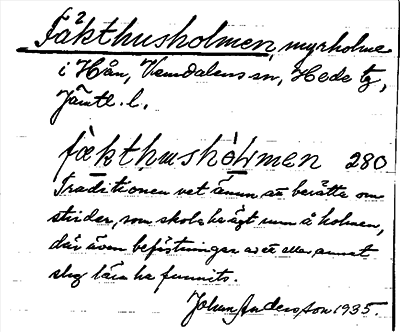 Fäkthusholmen, myrholme
i Hån, Vemdalens sn, Hede tg,
Jämtl. l.
fækthushòlmen 280
Traditionen vet ännu att berätta om
strider, som skola ha ägt rum å holmen,
där även befästningar av ett eller annat
slag lära ha funnits.
Johan Andersson 1935.